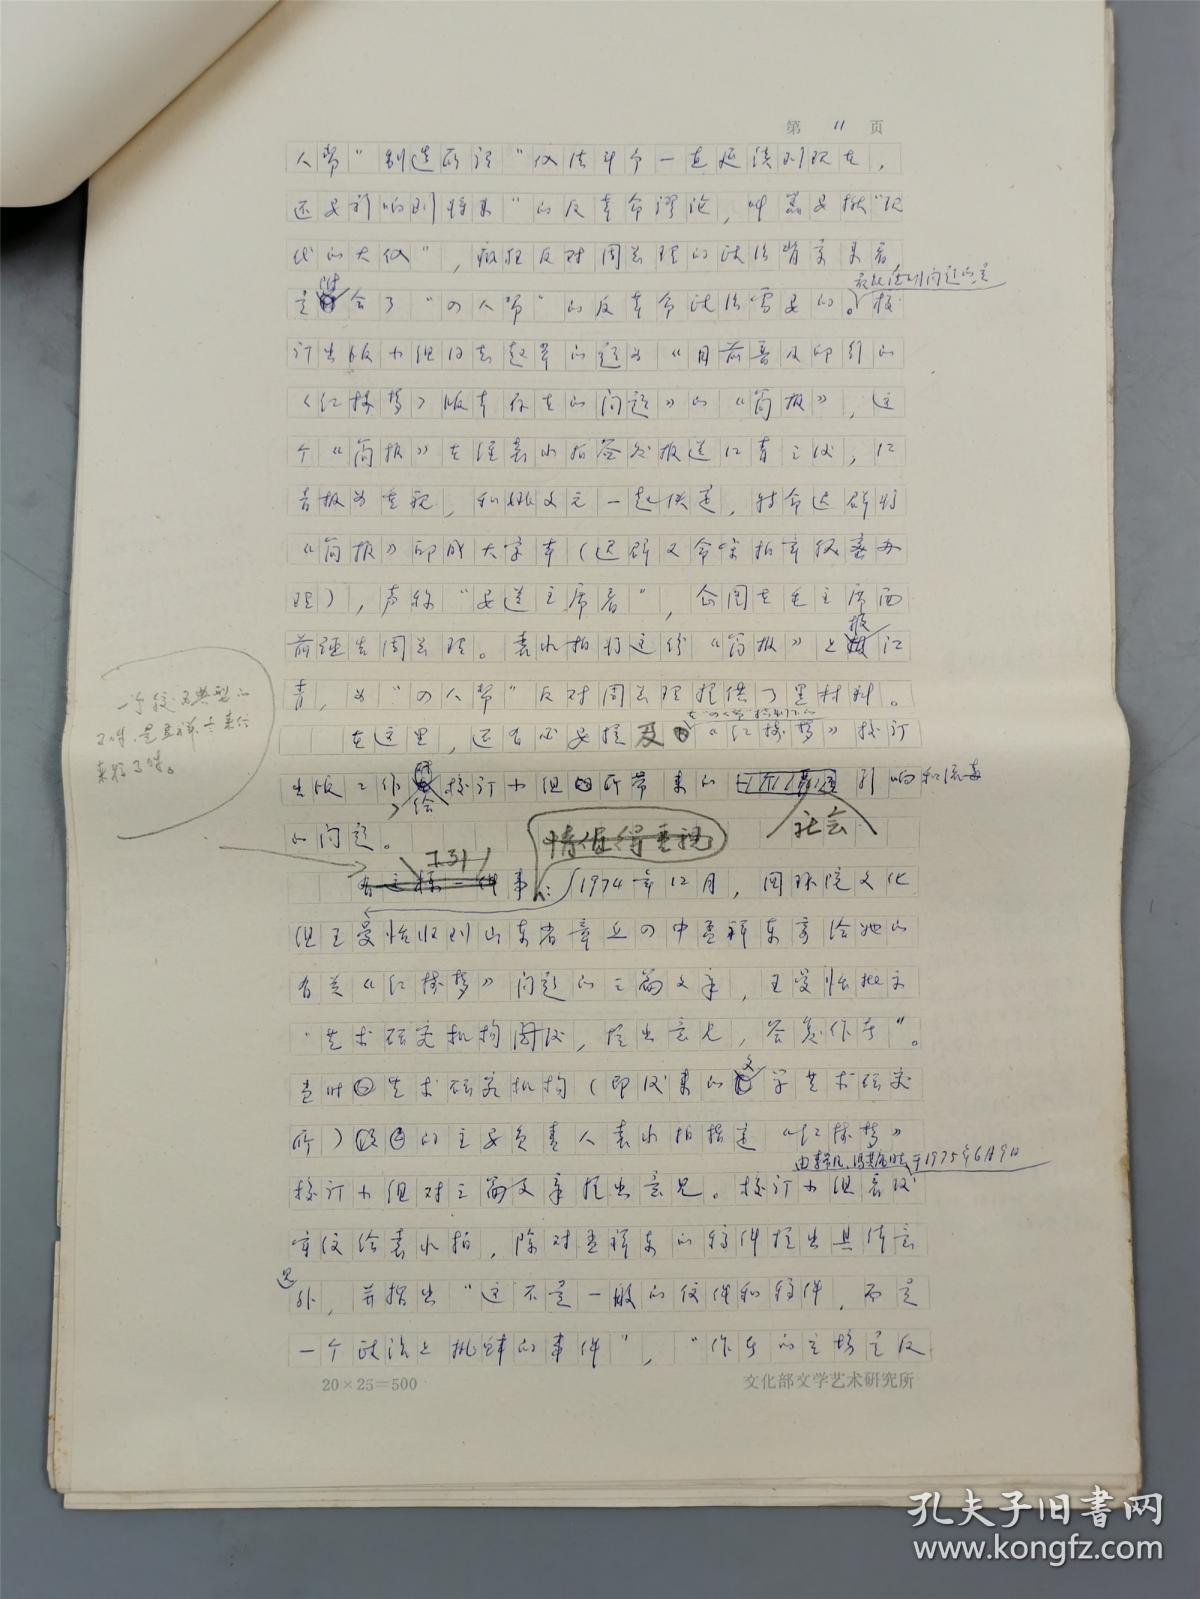 第 11 页
人帮"制造所谓"儒法斗争一直延续到现在，
还要影响到将来"的反革命谬论，叫嚣要揪"现
代的大儒"，疯狂反对周总理的政治背景来看
会了"四人帮"的反革命政治需要的。校
订出版小组 起草的题为"目前普及印行的
《红楼梦》版本存在的问题》的《简报》，这
个《简报》在经袁水拍签发报送江青之后，江
青极为重视，和姚文元一起 ，
《简报》印成大字本（迟群又命 袁水拍 办
理），声称"要送主席看"，企图在毛主席面
前诬告周总理。袁水拍将这份《简报》上报江
青，为"四人帮"反对周总理提供了黑材料。
在这里，还有必要提及《红楼梦》校订
出版工作给校订小组所带来的社会影响和流毒
的问题。
一个较为典型的
事件。
情值得重视
事：1974年12月，国务院文化
组王曼恬收到山东省章丘四中孟祥东寄给她的
有关《红楼梦》问题的三篇文章，王曼恬批示
"艺术研究机构阅后，提出意见，答复作者"。
当时艺术研究机构（即后来的文学艺术研究
所）的主要负责人袁水拍指定《红楼梦》
由李希凡、冯其庸 于1975年6月9日
校订小组对三篇文章提出意见。校订小组
给袁水拍，除对孟祥东的稿件提出具体意
见外，并指出"这不是一般的信件和稿件，而是
一个政治上挑衅的事件"，"作者的立场是反
20×25=500
文化部文学艺术研究所
孔夫子旧书网
www.kongfz.com